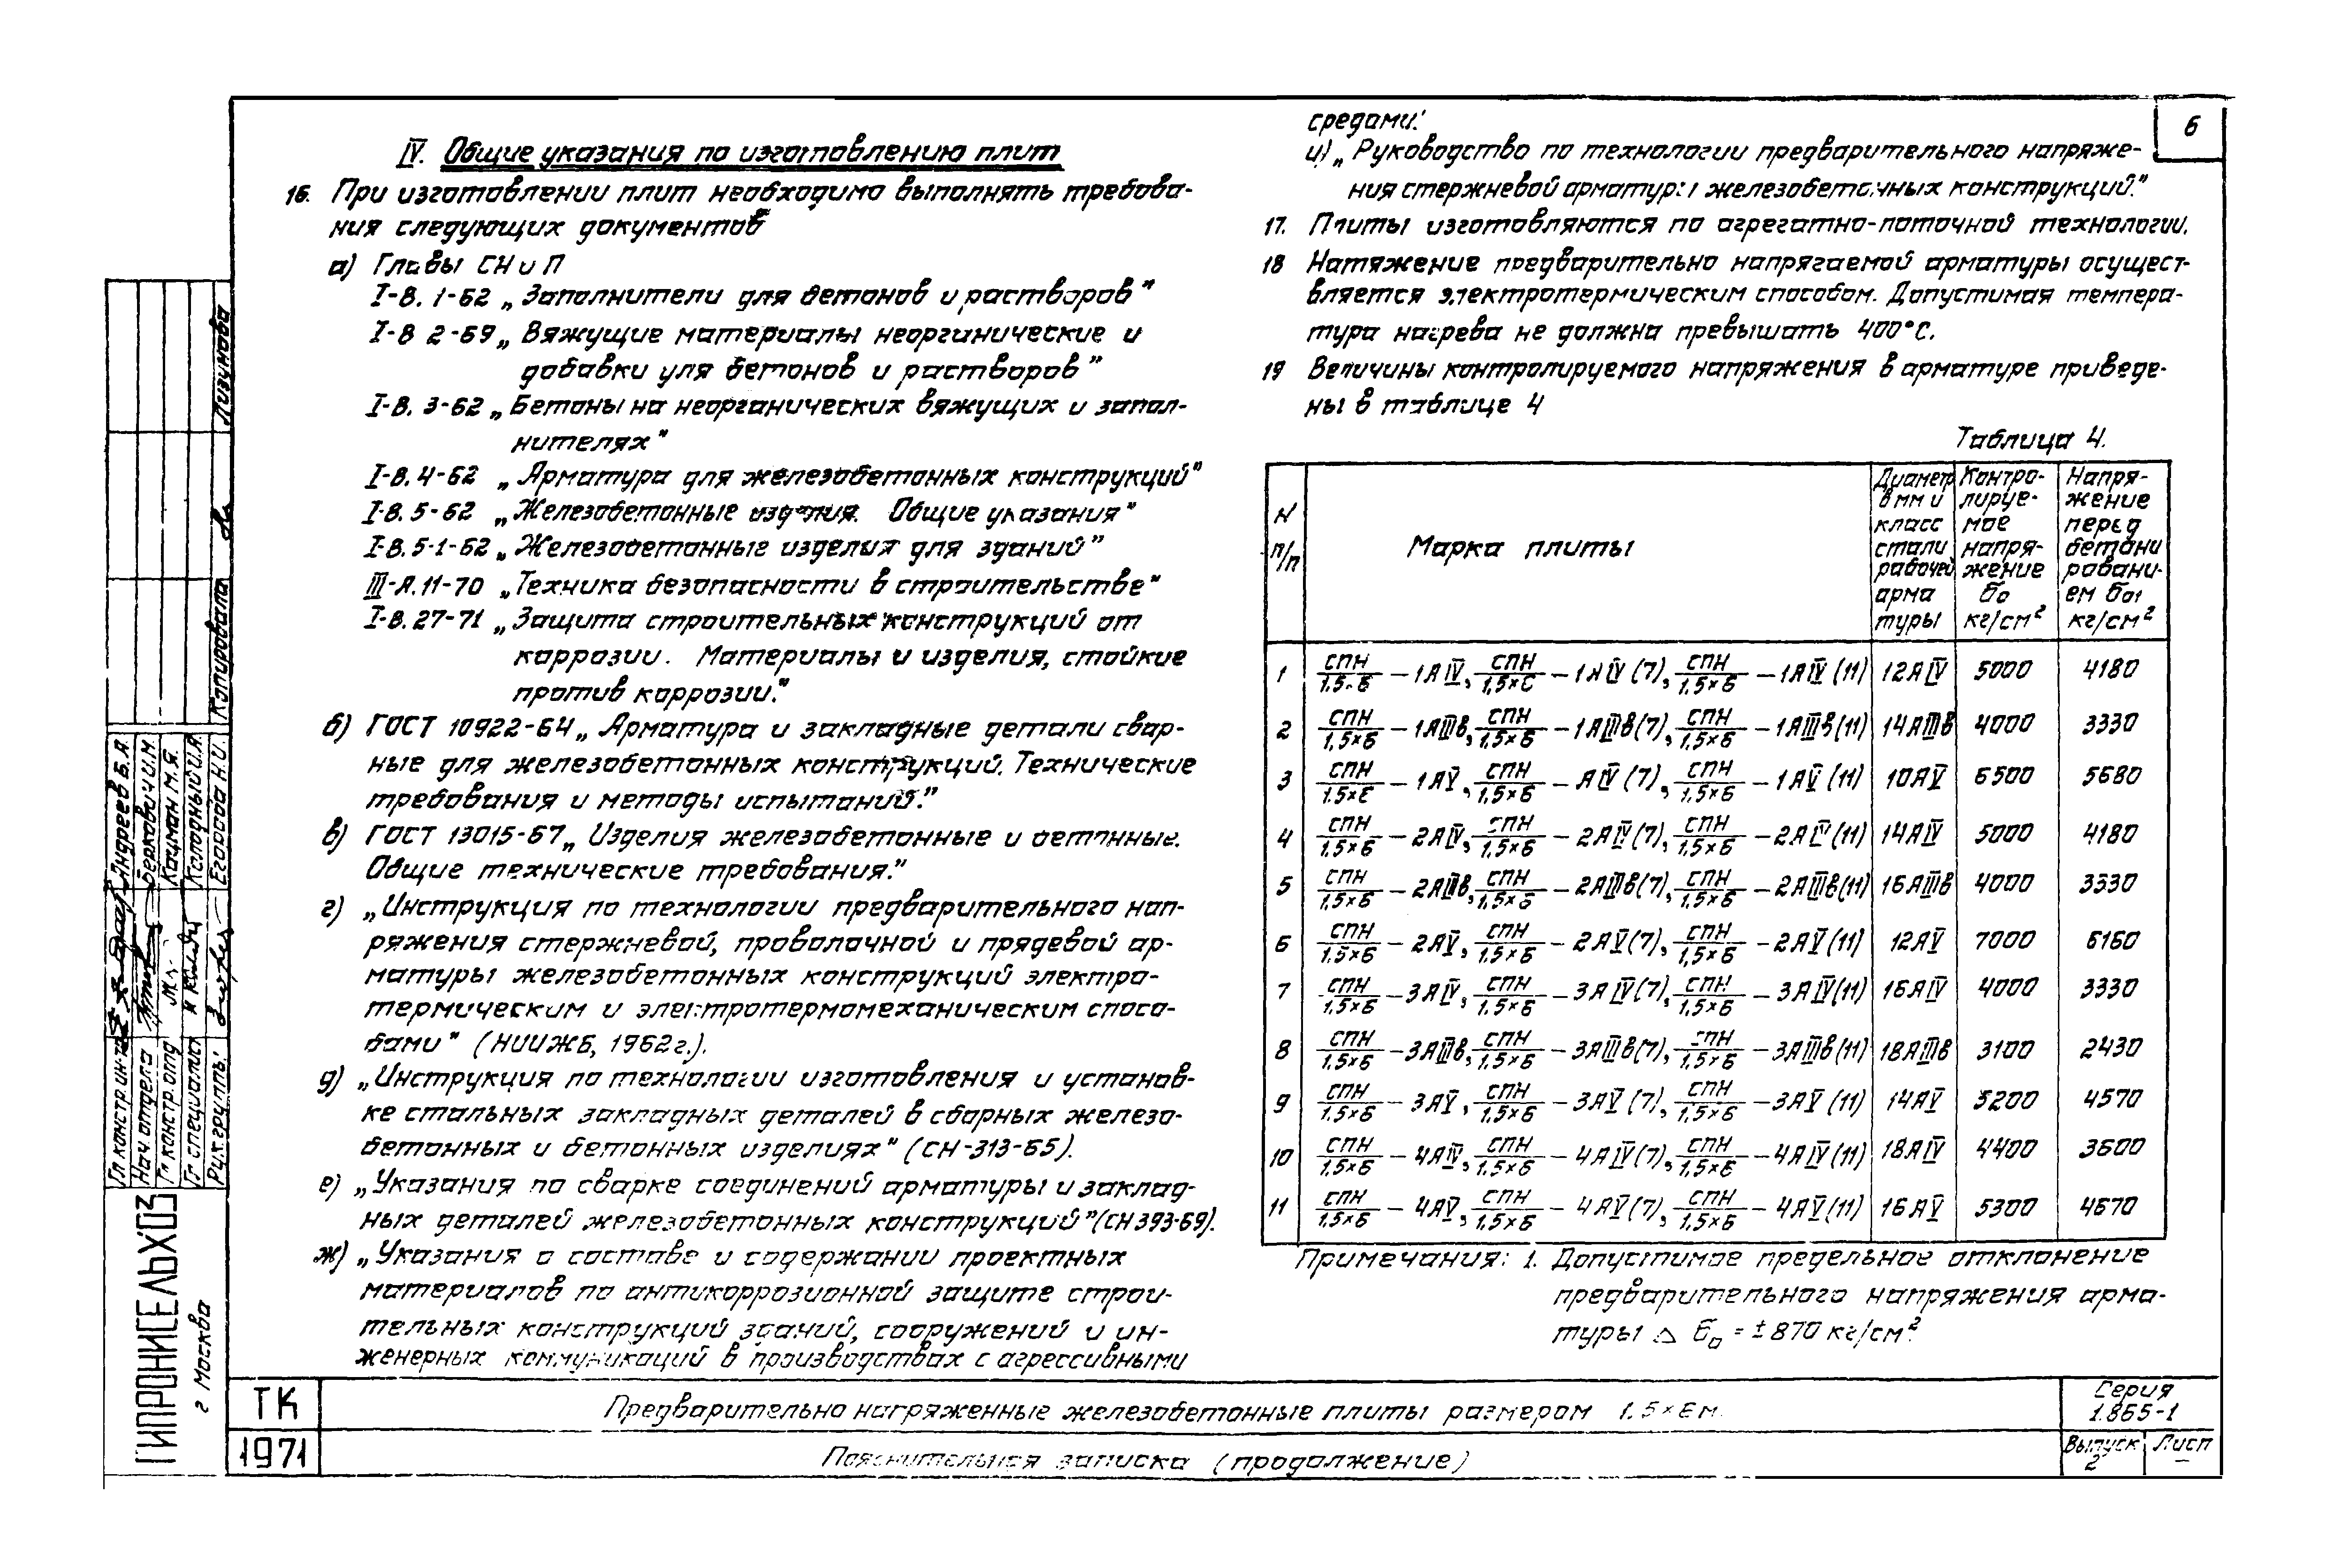 6
IV. Общие указания по изготовлению плит
16. При изготовлении плит необходимо выполнять требова-
ния следующих документов
а) Главы СН и П
I-В. 1-62 „Заполнители для бетонов и растворов"
I-В 2-69 „Вяжущие материалы неорганические и
добавки для бетонов и растворов"
I-В. 3-62 „Бетоны на неорганических вяжущих и запол-
нителях"
I-В. 4-62 „Арматура для железобетонных конструкций"
I-В. 5-62 „Железобетонные изделия. Общие указания"
I-В. 5-1-62 „Железобетонные изделия для зданий"
III-А. 11-70 „Техника безопасности в строительстве"
I-В. 27-71 „Защита строительных конструкций от
коррозии. Материалы и изделия, стойкие
против коррозии."
б) ГОСТ 10922-64 „Арматура и закладные детали свар-
ные для железобетонных конструкций. Технические
требования и методы испытаний."
в) ГОСТ 13015-67 „Изделия железобетонные и бетонные.
Общие технические требования."
г) „Инструкция по технологии предварительного нап-
ряжения стержневой, проволочной и прядевой ар-
матуры железобетонных конструкций электро-
термическим и электротермомеханическим спосо-
бами" (НИИЖБ, 1962г.).
д) „Инструкция по технологии изготовления и установ-
ке стальных закладных деталей в сборных железо-
бетонных и бетонных изделиях" (СН-313-65).
е) „Указания по сварке соединений арматуры и заклад-
ных деталей железобетонных конструкций" (СН 393-69).
ж) „Указания о составе и содержании проектных
материалов по антикоррозионной защите строи-
тельных конструкций зданий, сооружений и ин-
женерных коммуникаций в производствах с агрессивными
средами."
и) „Руководство по технологии предварительного напряже-
ния стержневой арматуры железобетонных конструкций."
17. Плиты изготовляются по агрегатно-поточной технологии.
18 Натяжение предварительно напрягаемой арматуры осущест-
вляется электротермическим способом. Допустимая темпера-
тура нагрева не должна превышать 400°С.
19 Величины контролируемого напряжения в арматуре приведе-
ны в таблице 4
Таблица 4.
N п/п | Марка плиты | Диаметр в мм и класс стали рабочей арма туры | Контро- лируе- мое напря- жение бо кг/см² | Напря- жение перед бетони ровани- ем бо1 кг/см²
1 | СПН/1,5×6 – 1АIV, СПН/1,5×6 – 1АIV (7), СПН/1,5×6 – 1АIV (11) | 12АIV | 5000 | 4180
2 | СПН/1,5×6 – 1АIIIв, СПН/1,5×6 – 1АIIIв(7), СПН/1,5×6 – 1АIIIв(11) | 14АIIIв | 4000 | 3330
3 | СПН/1,5×6 – 1АV, СПН/1,5×6 – АIV (7), СПН/1,5×6 – 1АV (11) | 10АV | 6500 | 5680
4 | СПН/1,5×6 – 2АIV, СПН/1,5×6 – 2АIV(7), СПН/1,5×6 – 2АIV (11) | 14АIV | 5000 | 4180
5 | СПН/1,5×6 – 2АIIIв, СПН/1,5×6 – 2АIIIв(7), СПН/1,5×6 – 2АIIIв(11) | 16АIIIв | 4000 | 3330
6 | СПН/1,5×6 – 2АV, СПН/1,5×6 – 2АV(7), СПН/1,5×6 – 2АV(11) | 12АV | 7000 | 6160
7 | СПН/1,5×6 – 3АIV, СПН/1,5×6 – 3АIV(7), СПН/1,5×6 – 3АIV(11) | 16АIV | 4000 | 3330
8 | СПН/1,5×6 – 3АIIIв, СПН/1,5×6 – 3АIIIв(7), СПН/1,5×6 – 3АIIIв(11) | 18АIIIв | 3100 | 2430
9 | СПН/1,5×6 – 3АV, СПН/1,5×6 – 3АV (7), СПН/1,5×6 – 3АV (11) | 14АV | 5200 | 4570
10 | СПН/1,5×6 – 4АIV, СПН/1,5×6 – 4АIV(7), СПН/1,5×6 – 4АIV(11) | 18АIV | 4400 | 3600
11 | СПН/1,5×6 – 4АV, СПН/1,5×6 – 4АV(7), СПН/1,5×6 – 4АV(11) | 16АV | 5300 | 4670
Примечания: 1. Допустимое предельное отклонение
предварительного напряжения арма-
туры Δ бо = ±870 кг/см².
ТК
1971
Предварительно напряженные железобетонные плиты размером 1,5×6м.
Пояснительная записка (продолжение)
Серия
1.865-1
Выпуск
2
Лист
–
ГИПРОНИСЕЛЬХОЗ
г Москва
Гл констр. ин-та Андреев Б.А.
Нач отдела Беркович И.М.
Гл констр. отд Кацман М.Я.
Гл специалист Колодный И.А
Рук. группы Егорова Н.И.
Копировала
Лизунова